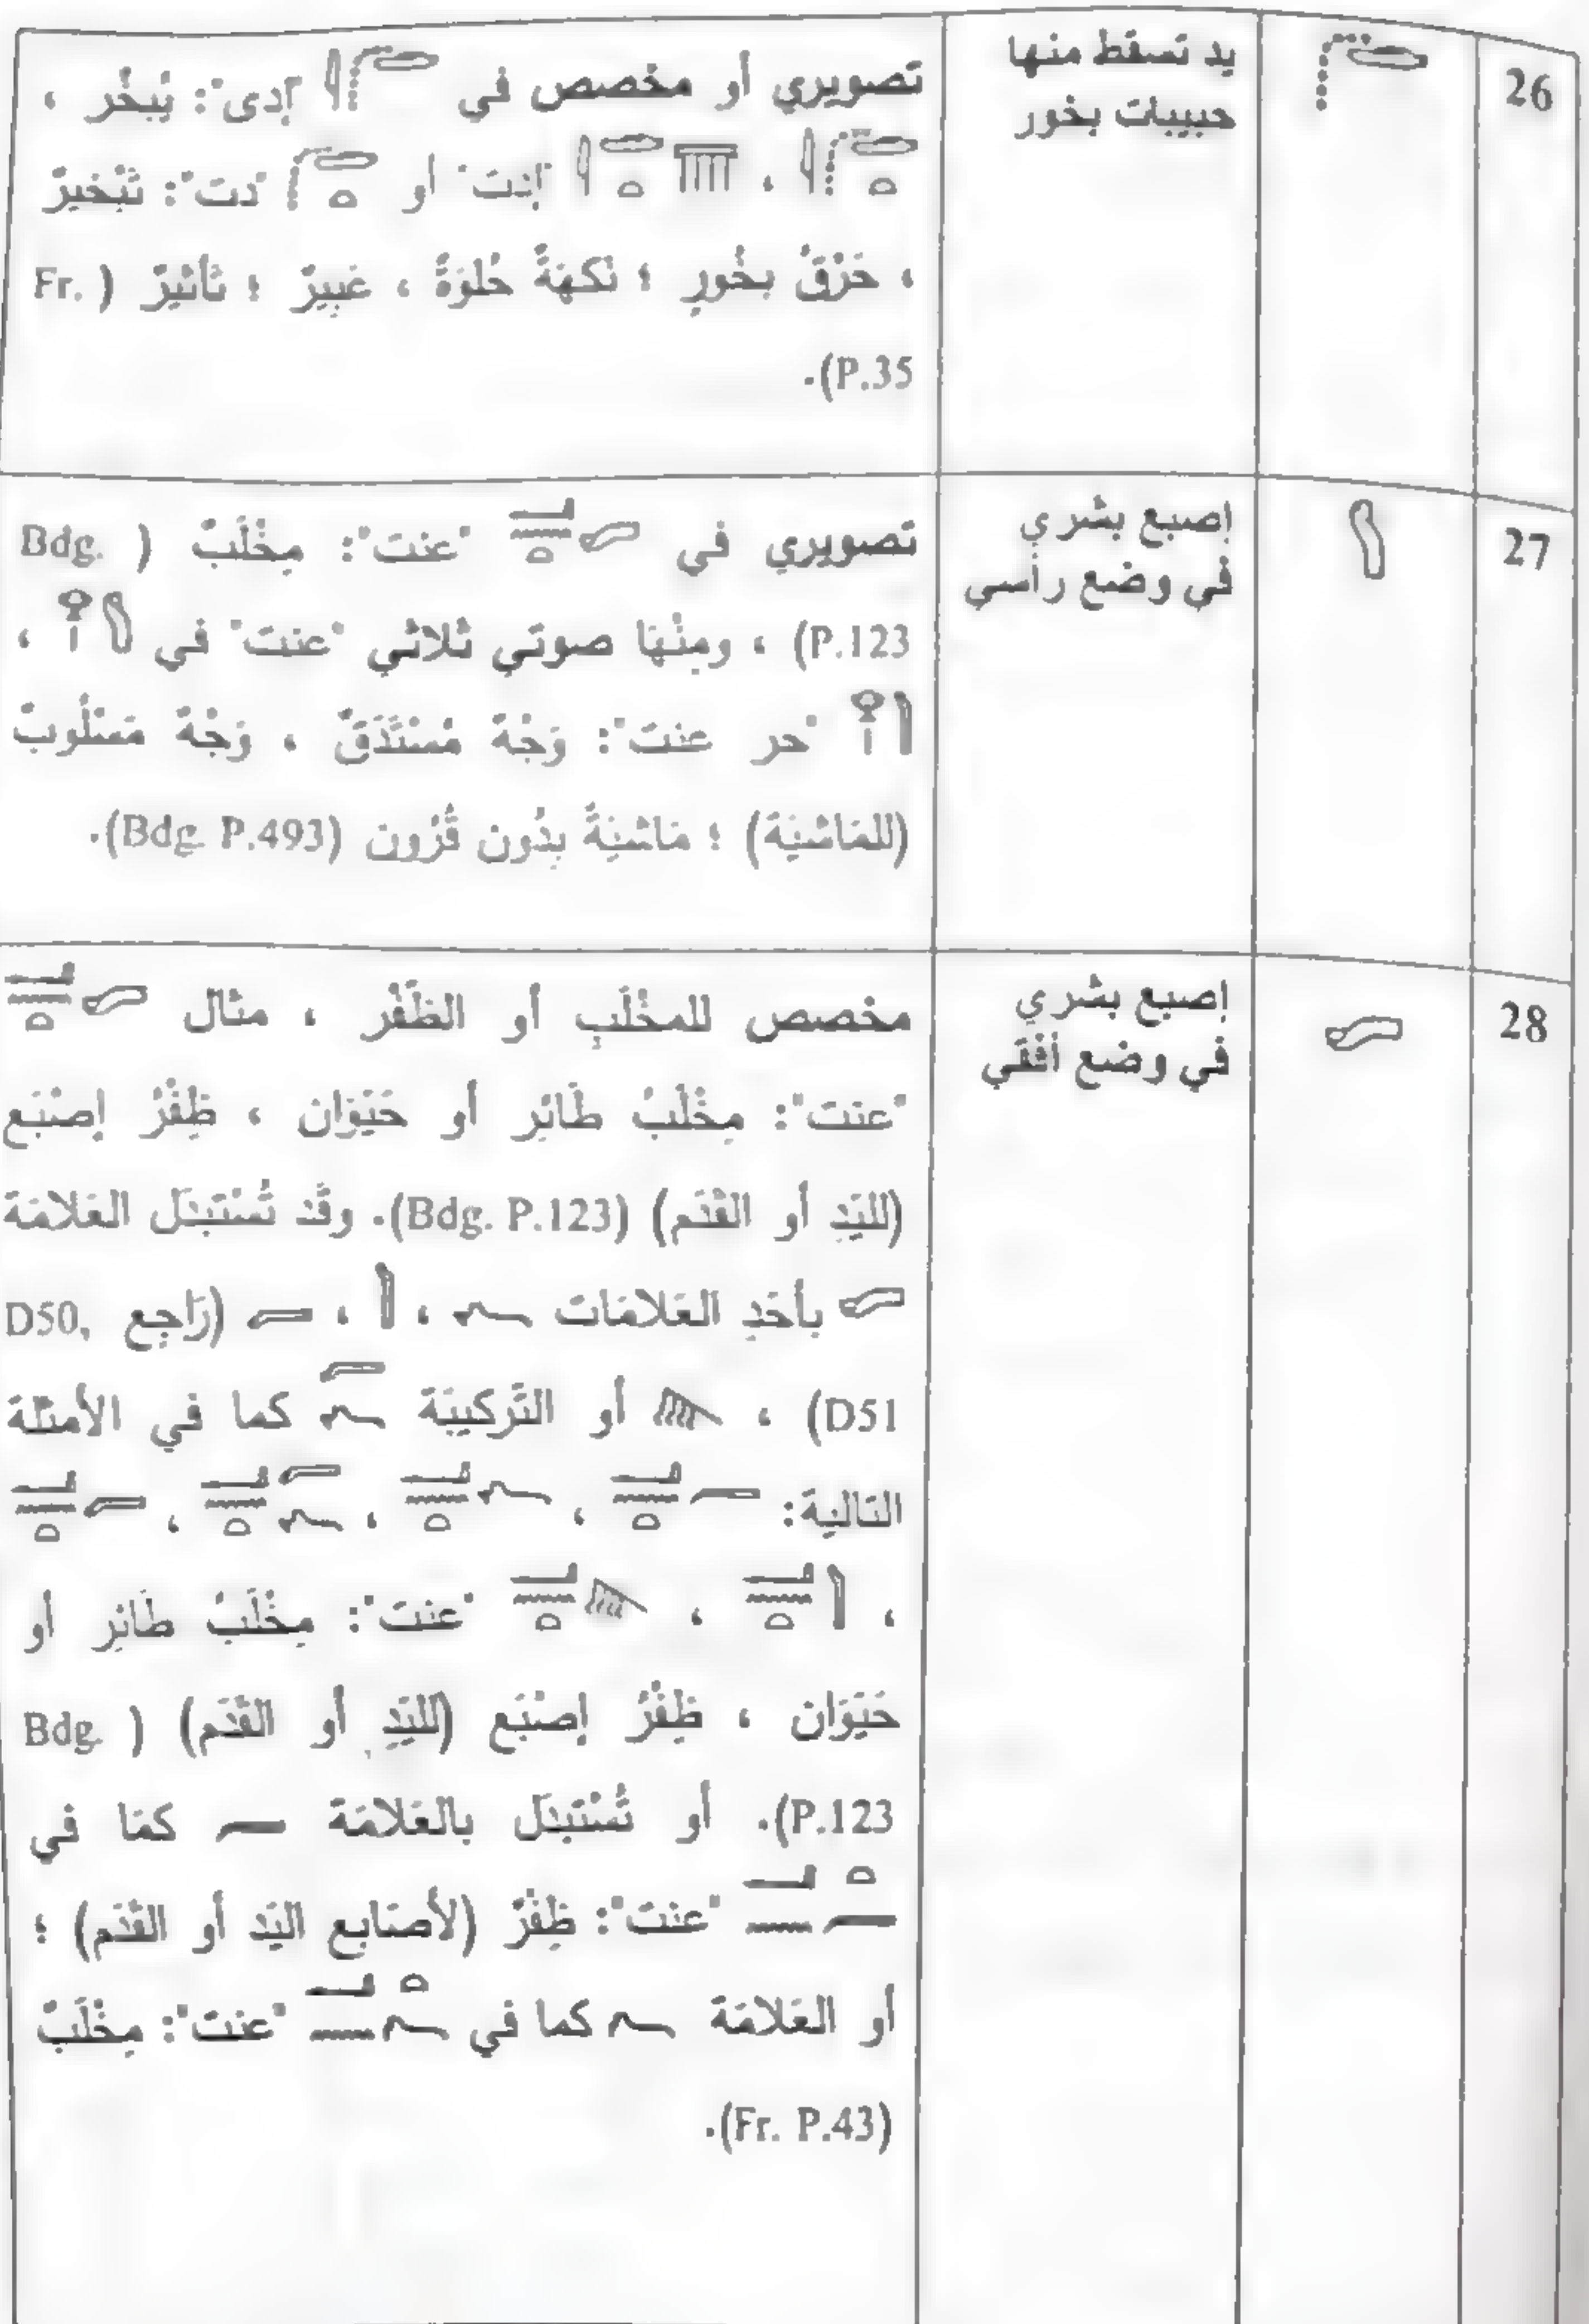 26
يد تسقط منها
حبيبات بخور
تصويري أو مخصص في "إدى": يُبخُر ،
، "إدت" أو "دت": تَبْخيرٌ
، حَرْقُ بخُورٍ ؛ نَكهَةً حُلوَةً ، عَبِيرٌ ؛ تَأثيرٌ (Fr.
P.35).
27
إصبع بشري
في وضع رأسي
تصويري في "عنت": مِخْلَبٌ (Bdg.
P.123) ، ومِنْهَا صوتي ثلاثي "عنت" في ،
"حر عنت": وَجْهٌ مُسْتَدَقٌ ، وَجْهٌ مَسْلُوبٌ
(للمَاشيَة) ؛ مَاشيَةٌ بدُون قُرُون (Bdg. P.493).
28
إصبع بشري
في وضع أفقي
مخصص للمخْلَبِ أو الظُفْر ، مثال
"عنت": مِخْلَبُ طَائرِ أو حَيَوَان ، ظِفْرُ إصْبَع
(لليَدِ أو القَدَم) (Bdg. P.123). وقَد تُسْتَبدَل العَلامَة
بأحَدِ العَلامَات ، ، (رَاجِع D50,
D51) ، أو التَّركيبَة كما في الأمثلَة
التالية: ، ، ،
، ، "عنت": مِخْلَبُ طَائرِ أو
حَيَوَان ، ظِفْرُ إصْبَع (لليَدِ أو القَدَم) (Bdg.
P.123). أو تُسْتَبدَل بالعَلامَة كمَا في
"عنت": ظِفْرٌ (لأصَابع اليَد أو القَدَم) ؛
أو العَلامَة كما في "عنت": مِخْلَبٌ
(Fr. P.43).